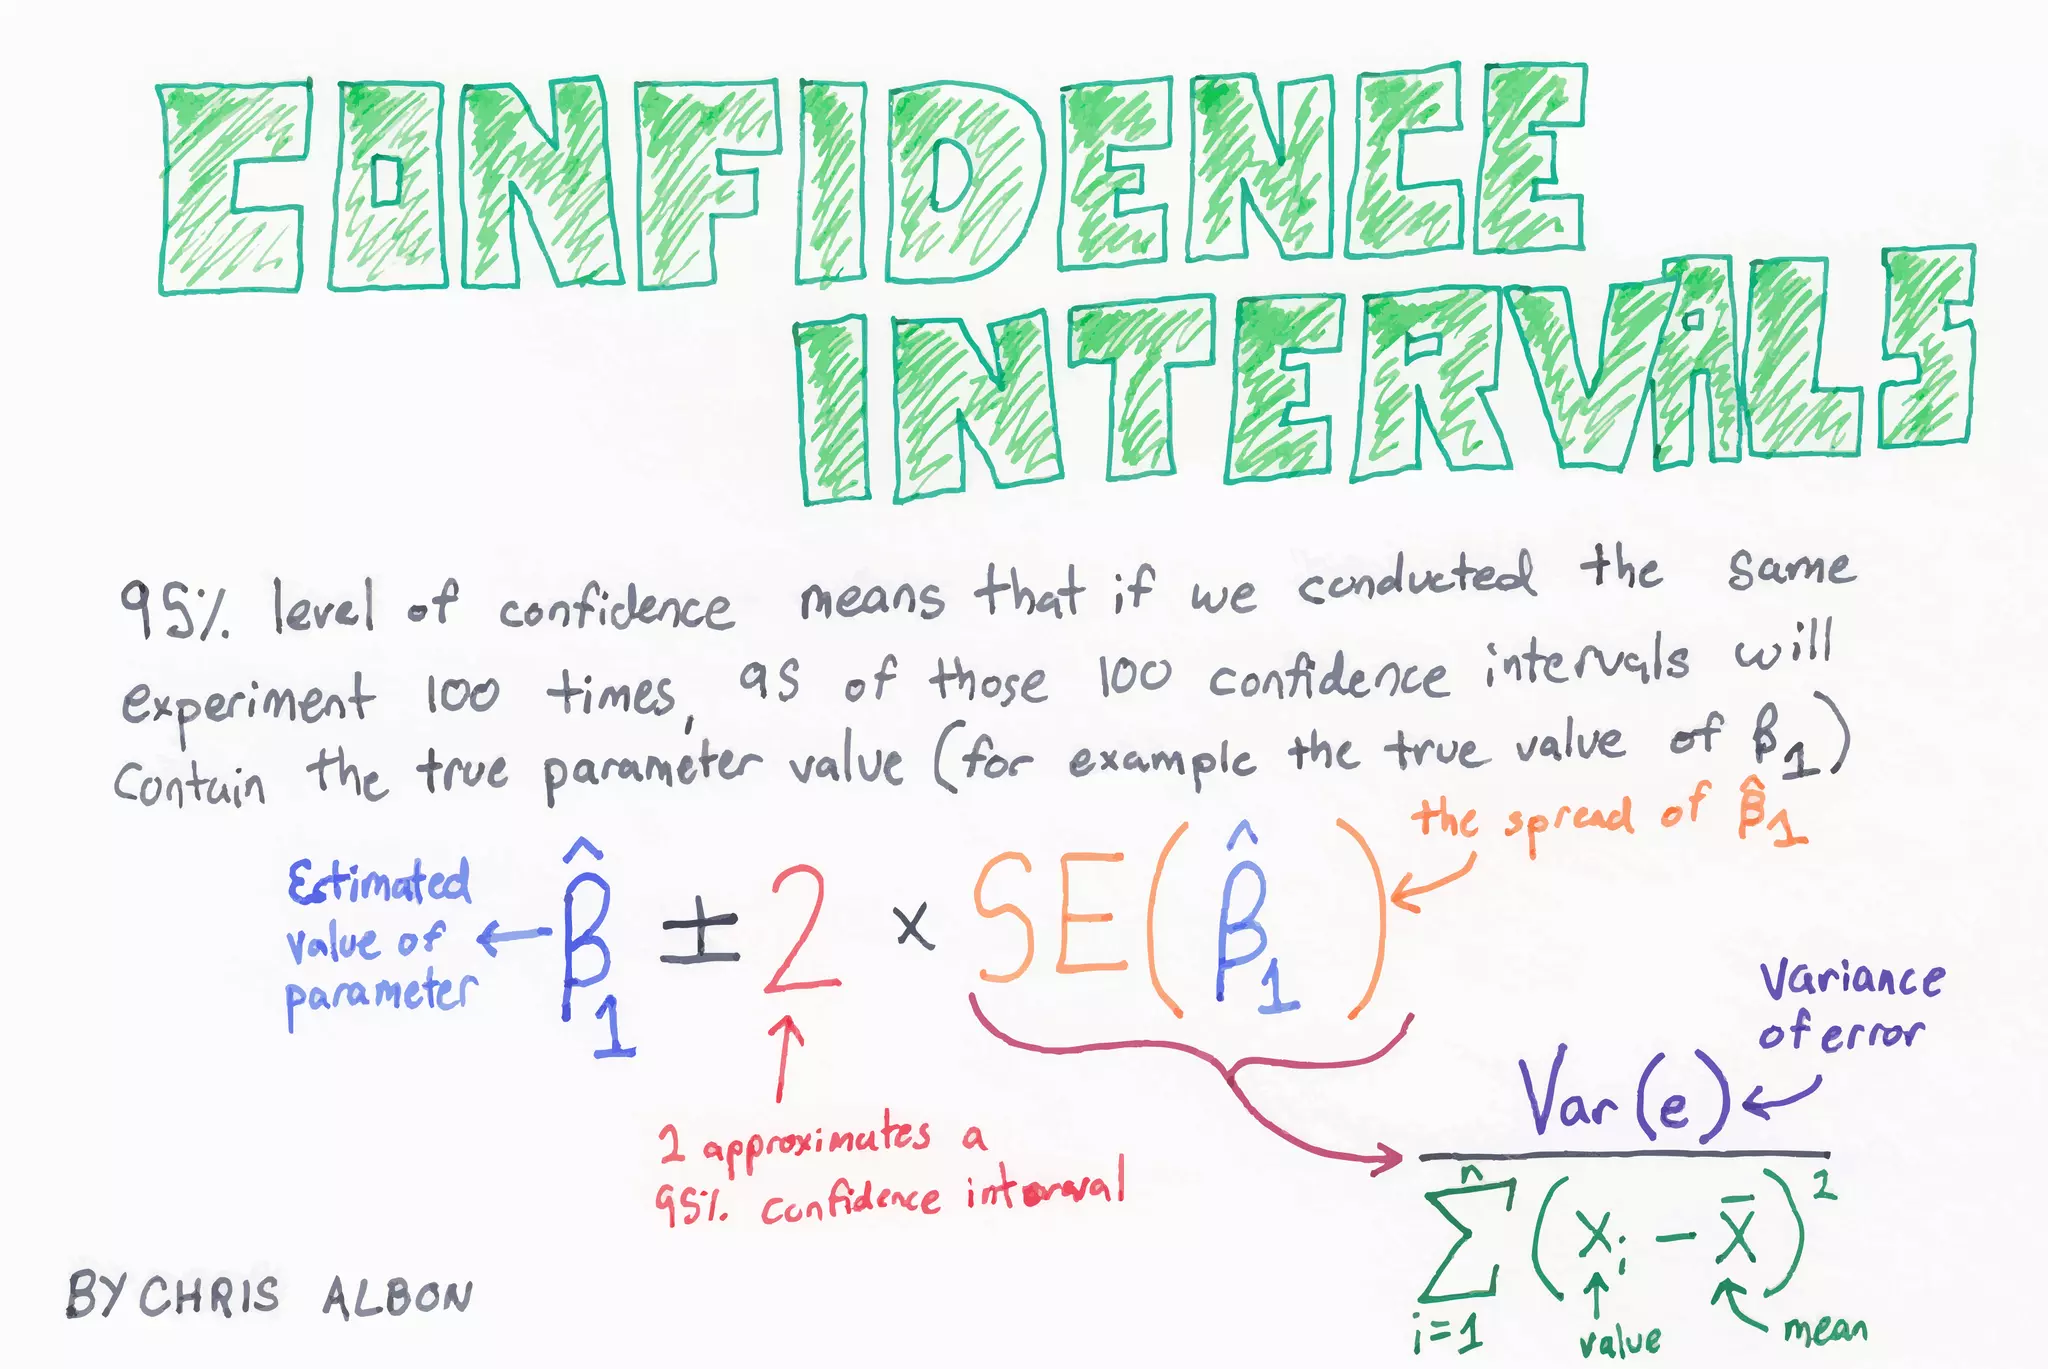 CONFIDENCE
INTERVALS
95% level of confidence means that if we conducted the same
experiment 100 times, 95 of those 100 confidence intervals will
contain the true parameter value (for example the true value of β₁)
the spread of β̂₁
Estimated
value of
parameter
β̂₁ ± 2 × SE(β̂₁)
2 approximates a
95% confidence interval
Variance
of error
Var(e)
n
∑ (xᵢ - x̄)²
i=1
value
mean
BY CHRIS ALBON